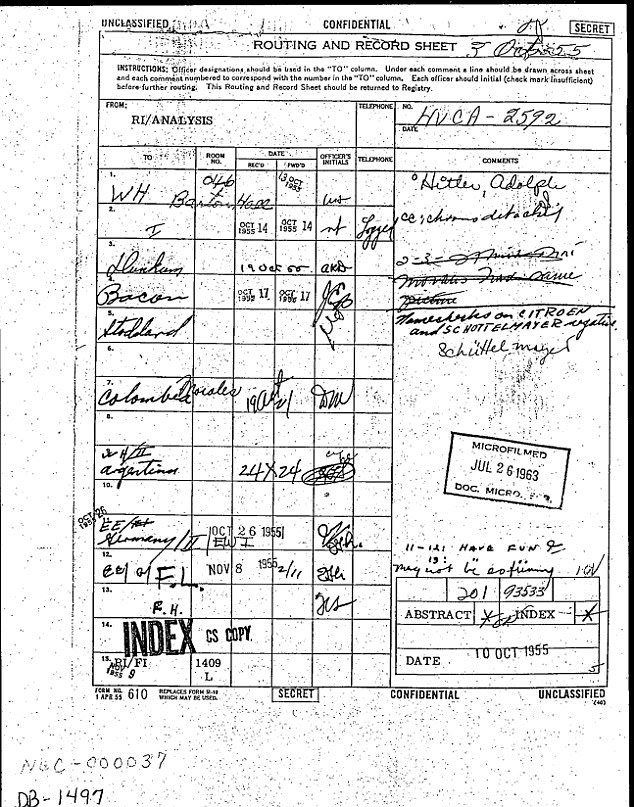 UNCLASSIFIED CONFIDENTIAL SECRET
ROUTING AND RECORD SHEET 3 Oct 55
INSTRUCTIONS: Officer designations should be used in the "TO" column. Under each comment a line should be drawn across sheet
and each comment numbered to correspond with the number in the "TO" column. Each officer should initial (check mark insufficient)
before further routing. This Routing and Record Sheet should be returned to Registry.
FROM:
RI/ANALYSIS
TELEPHONE
NO.
HVCA-2592
DATE
TO
ROOM NO.
DATE
REC'D
FWD'D
OFFICER'S INITIALS
TELEPHONE
COMMENTS
1.
WH
Barton Hall
13 OCT 1955
Hitler, Adolph
2.
I
OCT 14 1955
OCT 14 1955
3.
19 Oct 55
AKD
4.
Bacon
OCT 17 1955
OCT 17 1955
Namechecks on CITROEN
and SCHOTTELMAYER negative.
5.
Stoddard
Schüttelmayer
6.
7.
Colombia Morales
DM
8.
MICROFILMED
JUL 26 1963
DOC. MICRO. SER.
Argentina
24 X 24
10.
OCT 26 1955
EE/
Germany/II
OCT 26 1955
11-12: HAVE FUN
may not be
12.
EE/
F.L.
NOV 8 1955
2/11
201 93533
13.
R.H.
ABSTRACT X INDEX X
14.
INDEX CS COPY
DATE 10 OCT 1955
15.
RI/FI
NOV 9 1955
1409
L
FORM NO. 610
1 APR 55
REPLACES FORM 51-10
WHICH MAY BE USED.
SECRET CONFIDENTIAL UNCLASSIFIED
NBC-000037
DB-1497